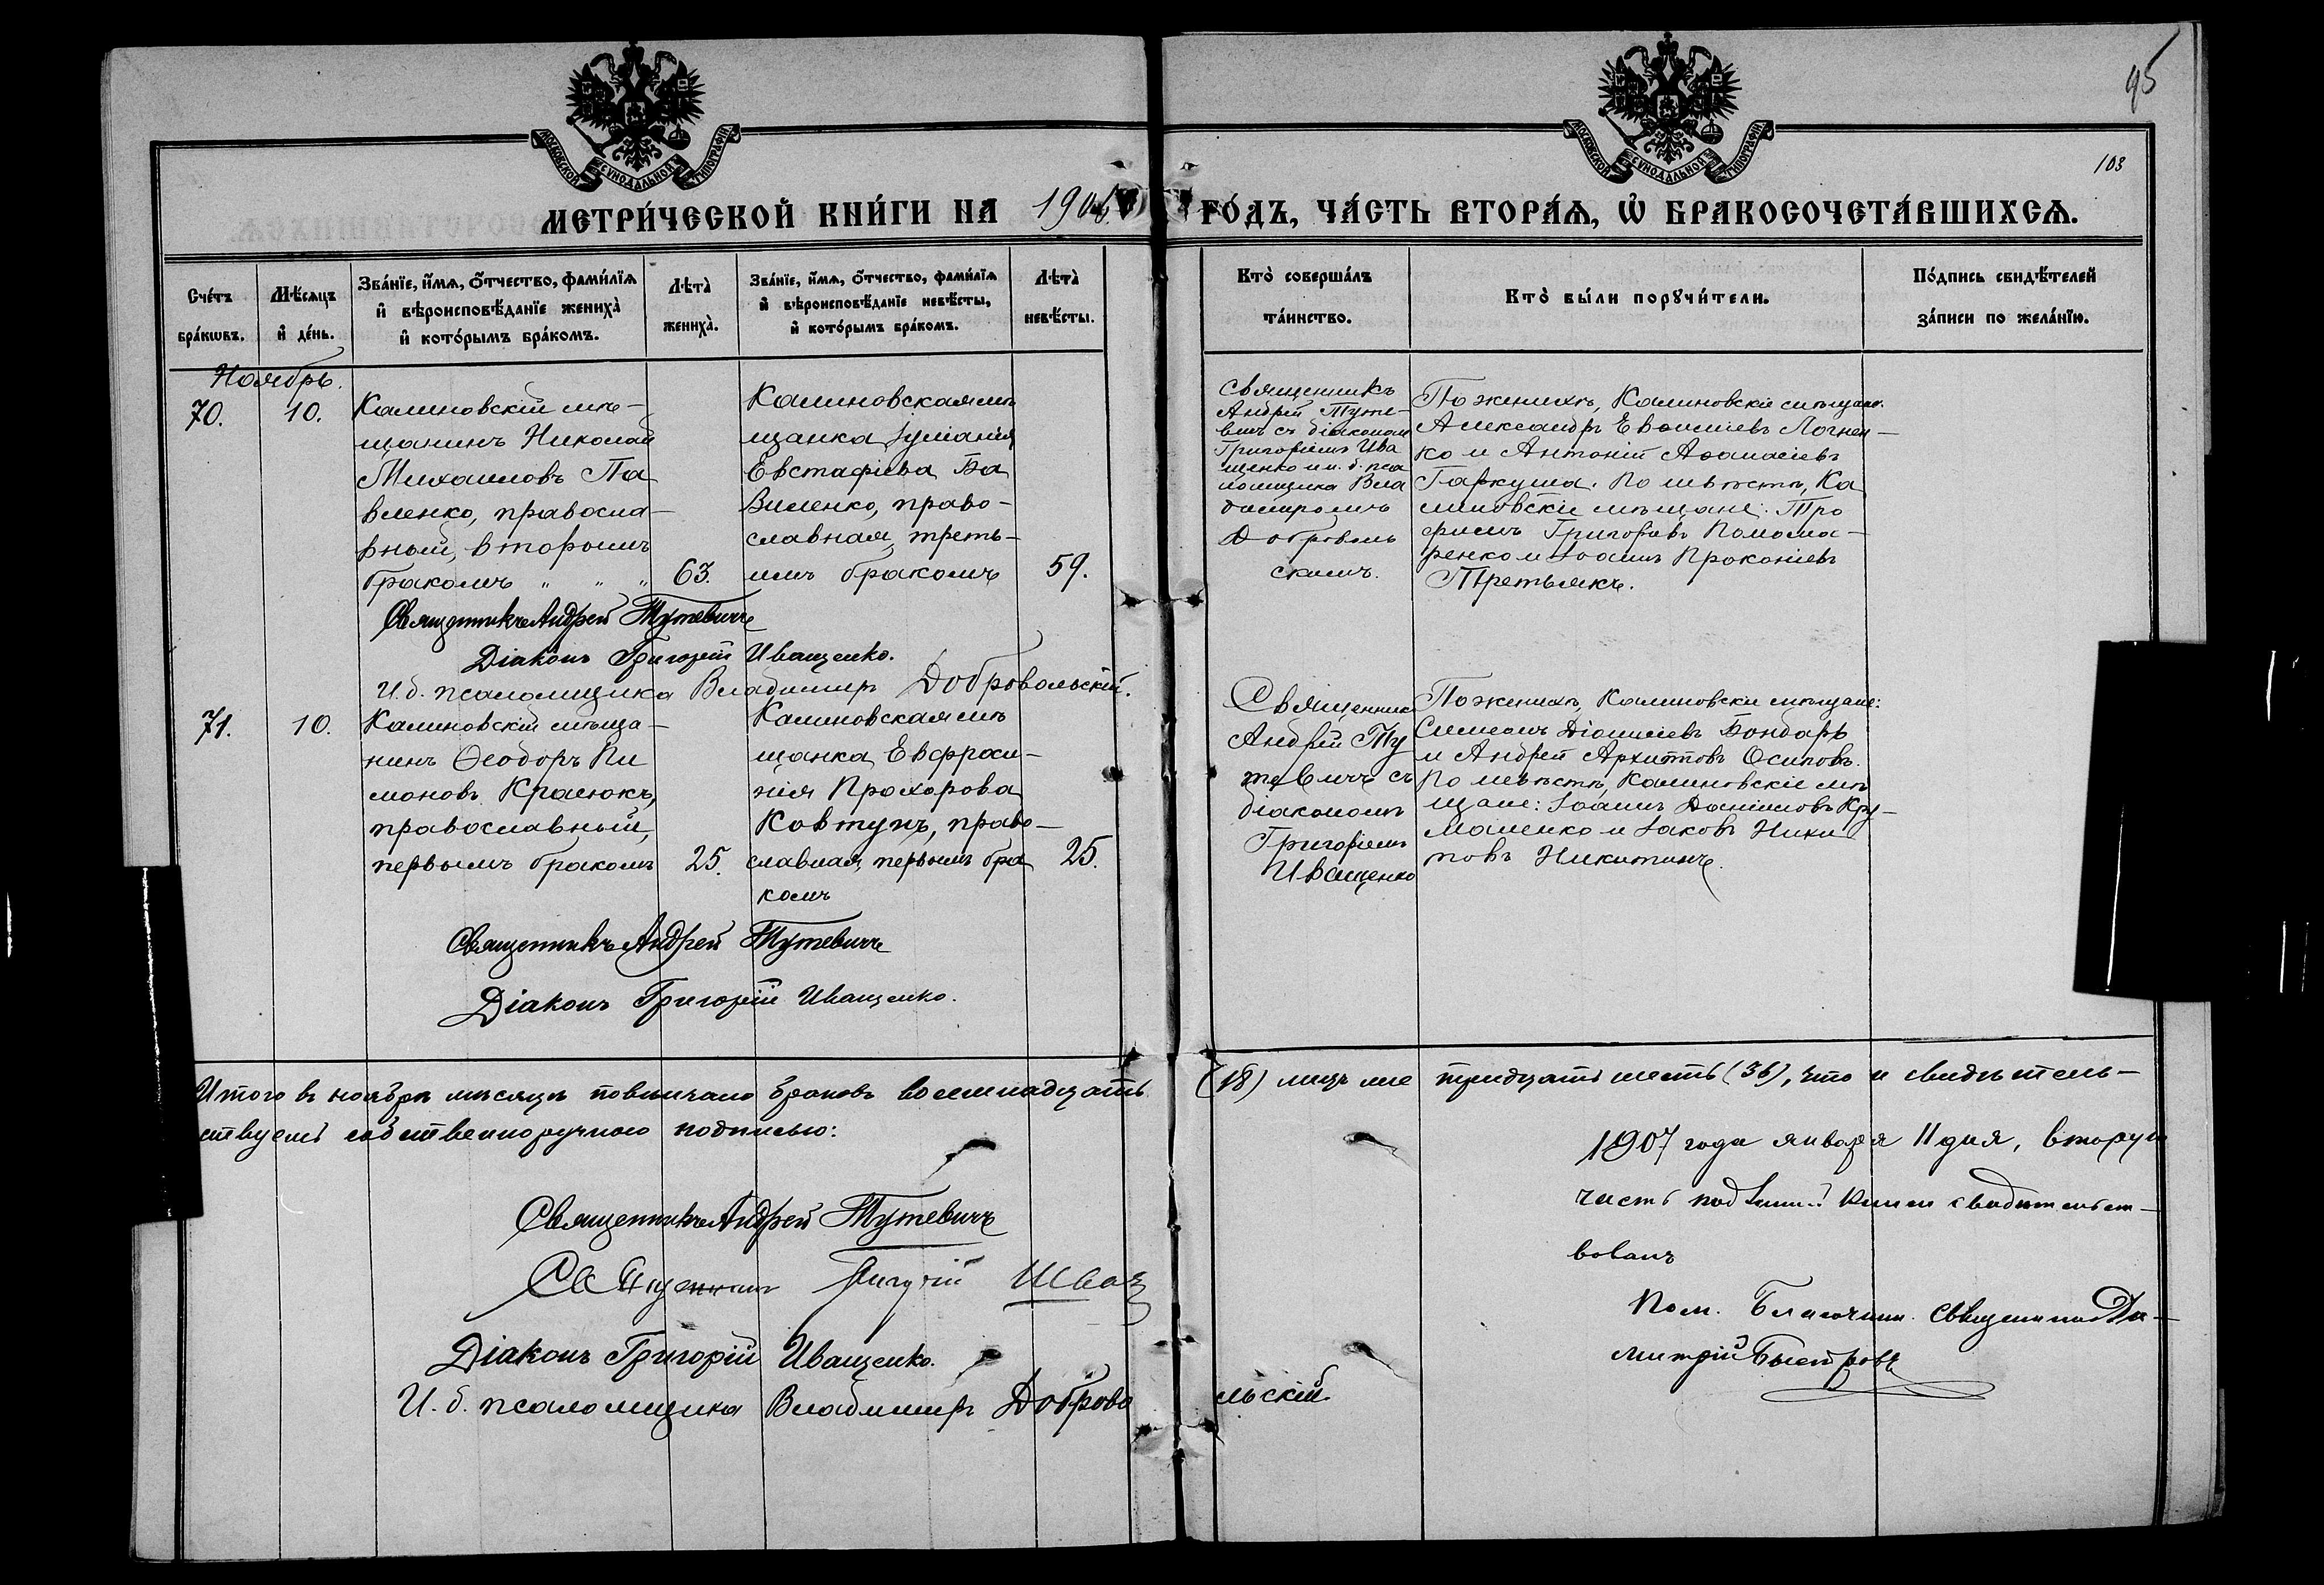 95
103
МОСКОВСКОЙ СѴНОДАЛЬНОЙ ТИПОГРАФІИ
МОСКОВСКОЙ СѴНОДАЛЬНОЙ ТИПОГРАФІИ
МЕТРИ́ЧЕСКОЙ КНИ́ГИ НА 1906 ГО́ДЪ, ЧА́СТЬ ВТОРА́Ѧ, Ѽ БРАКОСОЧЕТА́ВШИХСѦ.
Сче́тъ бра́кѡвъ.
Мѣ́сяцъ и де́нь.
Зва́нїе, и́мѧ, о́тчество, фами́лїѧ
и вѣроисповѣ́данїе жениха̀
и кото́рымъ бра́комъ.
Лѣта̀ жениха̀.
Зва́нїе, и́мѧ, о́тчество, фами́лїѧ
и вѣроисповѣ́данїе невѣ́сты,
и кото́рымъ бра́комъ.
Лѣта̀ невѣ́сты.
Кто̀ соверша́лъ
та́инство.
Кто̀ бы́ли порꙋчи́тели.
По́дпись свидѣ́телей
за́писи по жела́нїю.
Ноябрь.
70.
10.
Калиновскій мѣ-
щанинъ Николай
Михаиловъ Па
вленко, правосла-
вный, вторымъ
бракомъ " " "
63.
Калиновская мѣ
щанка Іуліанія
Евстафіева Ва
виленко, право-
славная, треть-
имъ бракомъ
59.
Священникъ
Андрей Туте-
вичъ съ діакономъ
Григоріемъ Ива
щенко и и. б. пса
ломщика Вла
диміромъ
Доброволь
скимъ.
По женихѣ, Калиновскіе мѣщане:
Александръ Евѳиміевъ Логнен-
ко и Антоній Аѳанасіевъ
Гаркуша. По невѣстѣ, Ка
линовскіе мѣщане: Тро
фимъ Григоріевъ
ренко и Іоаннъ Прокопіевъ
Третьякъ.
Священникъ Андрей Тутевичъ
Діаконъ Григорій Иващенко.
И. б. псаломщика Владимиръ Добровольскій.
71.
10.
Калиновскій мѣща-
нинъ Ѳеодоръ Пи
моновъ Красюкъ,
православный,
первымъ бракомъ
25.
Калиновская мѣ
щанка Евфроси-
нія Прохорова
Ковтунъ, право-
славная, первымъ бра
комъ
25.
Священникъ
Андрей Ту
тевичъ съ
діакономъ
Григоріемъ
Иващенко
По женихѣ, Калиновскіе мѣщане:
Симеонъ Діонисіевъ Бондарь
и Андрей Архипповъ Осиповъ.
По невѣстѣ, Калиновскіе мѣ
щане: Іоаннъ Даніиловъ Кру-
маленко и Іаковъ Ники
товъ Никитинъ.
Священникъ Андрей Тутевичъ
Діаконъ Григорій Иващенко.
Итого въ ноябрѣ мѣсяцѣ повѣнчано браковъ восемнадцать (18) лицъ тридцать шесть (36), что и свидѣтель-
ствуемъ собственноручною подписью:
Священникъ Андрей Тутевичъ
Священникъ
Діаконъ Григорій Иващенко.
И. б. псаломщика Владимиръ Добровольскій
1907 года января 11 дня, вторую
часть книги свидѣтельст-
вовалъ
Пом. Благочин. Священникъ Ди-
митрій Быстровъ